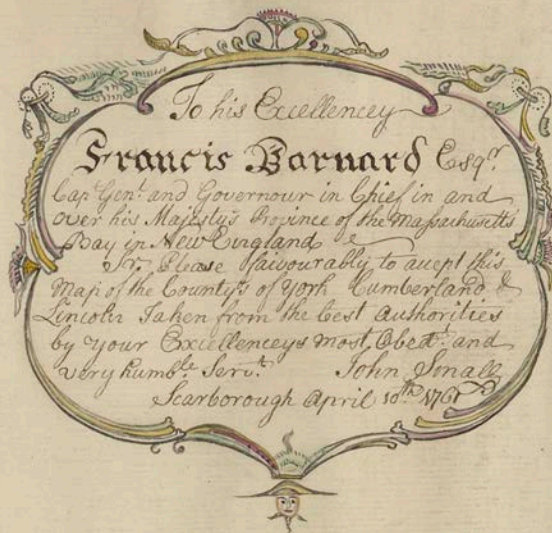 To his Excellencey
Francis Barnard Esqr.
Capt Genl. and Governour in Chief in and
Over his Majestys Province of the Massachusetts
Bay in New England
Sr. Please favourably to accept this
Map of the Countys of York Cumberland &
Lincoln Taken from the best authorities
by your Excellenceys most Obedt. and
very humble Servt. John Small
Scarborough April 10th 1761